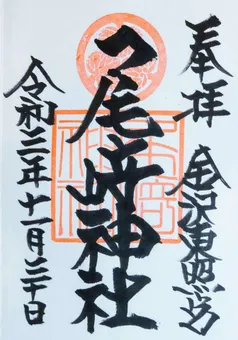 奉拝
金沢東照宮
尾崎神社
令和三年十一月三十日